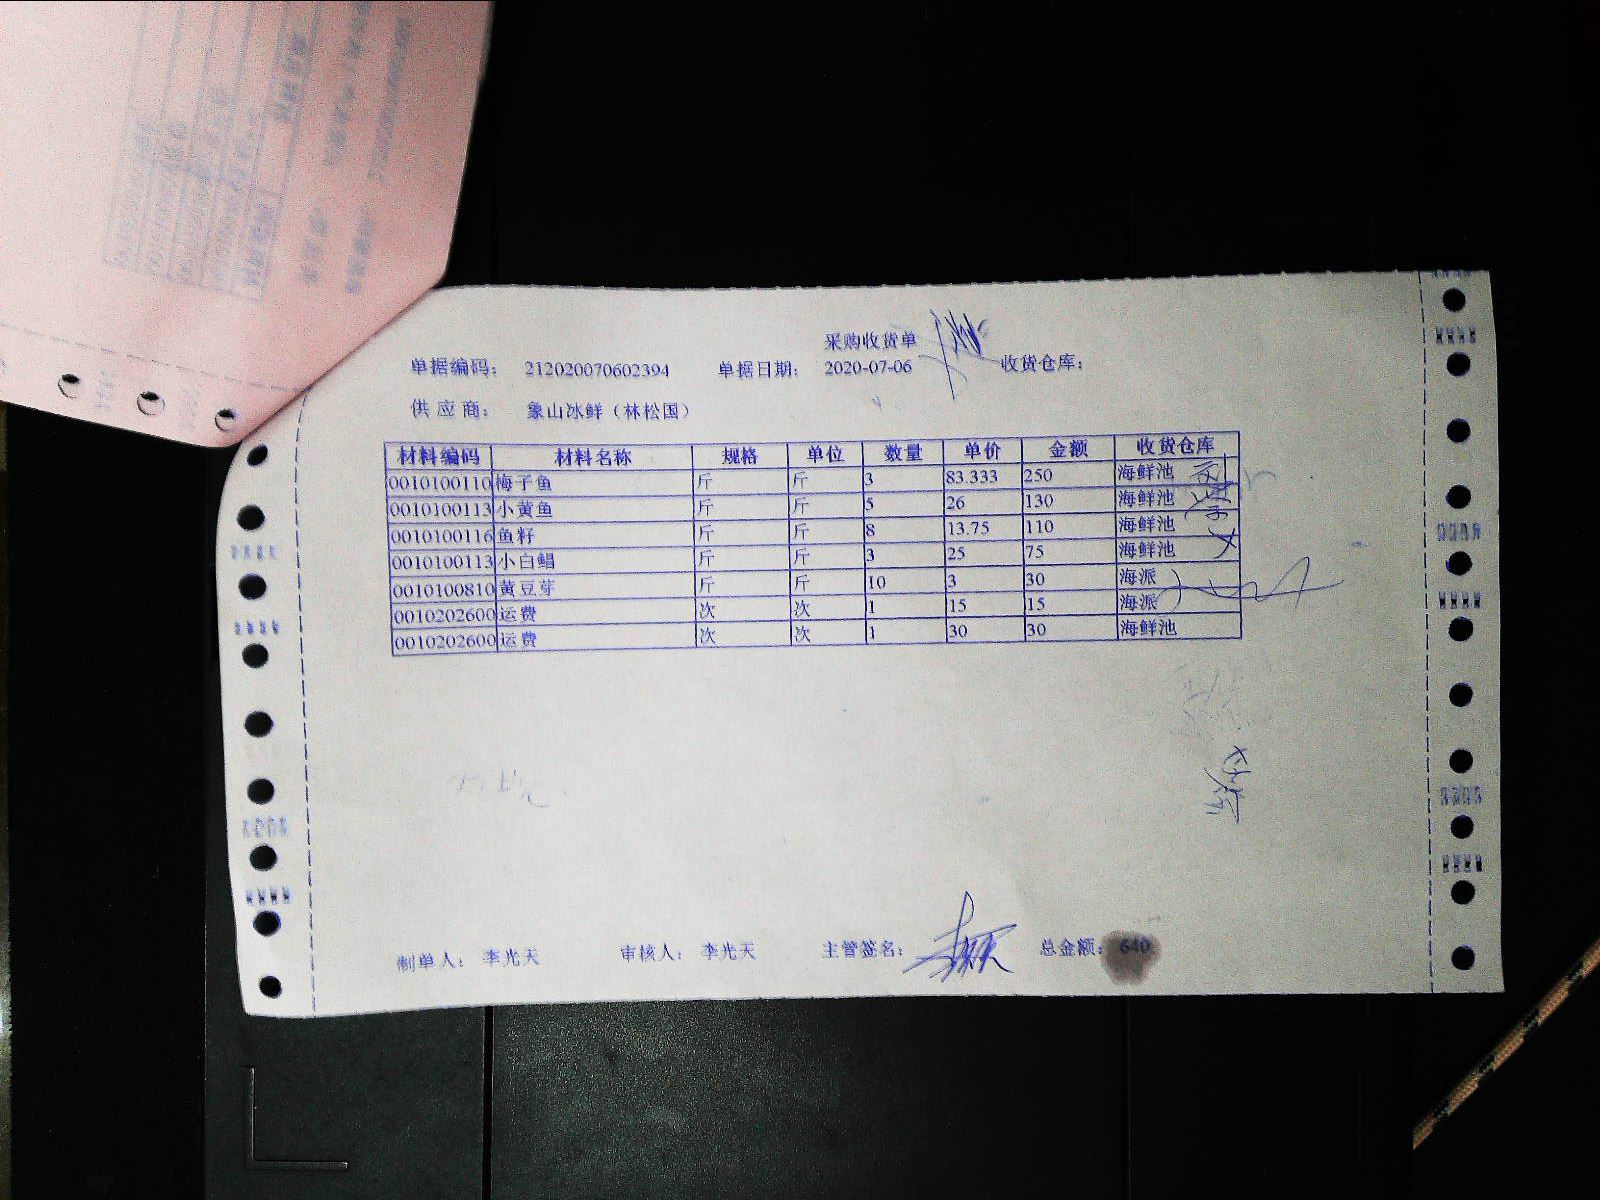 采购收货单
单据编码： 212020070602394 单据日期： 2020-07-06 收货仓库：
供应商： 象山冰鲜（林松国）
材料编码 材料名称 规格 单位 数量 单价 金额 收货仓库
0010100110 梅子鱼 斤 斤 3 83.333 250 海鲜池
0010100113 小黄鱼 斤 斤 5 26 130 海鲜池
0010100116 鱼籽 斤 斤 8 13.75 110 海鲜池
0010100113 小白鲳 斤 斤 3 25 75 海鲜池
0010100810 黄豆芽 斤 斤 10 3 30 海派
0010202600 运费 次 次 1 15 15 海派
0010202600 运费 次 次 1 30 30 海鲜池
制单人： 李光天 审核人： 李光天 主管签名： 总金额： 640